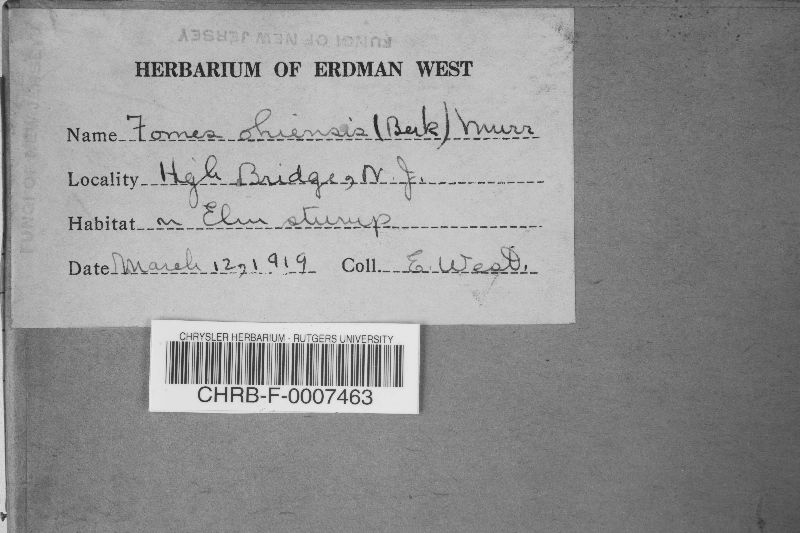 FUNGI OF NEW JERSEY
HERBARIUM OF ERDMAN WEST
Name Fomes ohiensis (Berk) Murr
Locality High Bridge, N. J.
Habitat on Elm stump
Date March 12, 1919 Coll. E. West.
CHRYSLER HERBARIUM - RUTGERS UNIVERSITY
CHRB-F-0007463